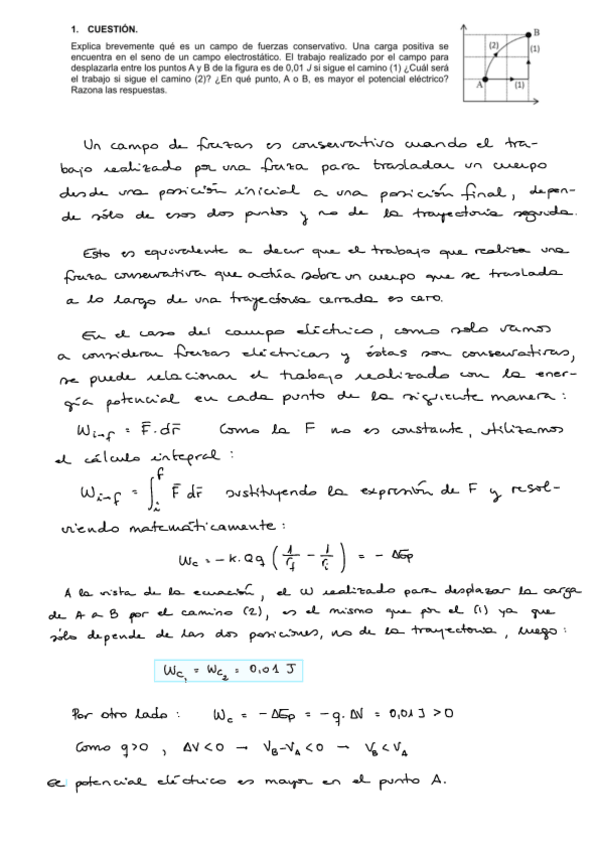 1. CUESTIÓN.
Explica brevemente qué es un campo de fuerzas conservativo. Una carga positiva se
encuentra en el seno de un campo electrostático. El trabajo realizado por el campo para
desplazarla entre los puntos A y B de la figura es de 0,01 J si sigue el camino (1) ¿Cuál será
el trabajo si sigue el camino (2)? ¿En qué punto, A o B, es mayor el potencial eléctrico?
Razona las respuestas.
B
(2)
(1)
A
(1)
Un campo de fuerzas es conservativo cuando el tra-
bajo realizado por una fuerza para trasladar un cuerpo
desde una posición inicial a una posición final, depen-
de sólo de esos dos puntos y no de la trayectoria seguida.
Esto es equivalente a decir que el trabajo que realiza una
fuerza conservativa que actúa sobre un cuerpo que se traslada
a lo largo de una trayectoria cerrada es cero.
En el caso del campo eléctrico, como solo vamos
a considerar fuerzas eléctricas y éstas son conservativas,
se puede relacionar el trabajo realizado con la ener-
gía potencial en cada punto de la siguiente manera:
Wi→f = F̄ · dr̄ Como la F no es constante, utilizamos
el cálculo integral:
Wi→f = ∫ᵢᶠ F̄ dr̄ sustituyendo la expresión de F y resol-
viendo matemáticamente:
Wc = -K·Qq (1/rf - 1/ri) = - ΔEp
A la vista de la ecuación, el W realizado para desplazar la carga
de A a B por el camino (2), es el mismo que por el (1) ya que
sólo depende de las dos posiciones, no de la trayectoria, luego:
Wc₁ = Wc₂ = 0,01 J
Por otro lado: Wc = -ΔEp = -q·ΔV = 0,01 J > 0
Como q>0, ΔV<0 → VB-VA<0 → VB<VA
el potencial eléctrico es mayor en el punto A.